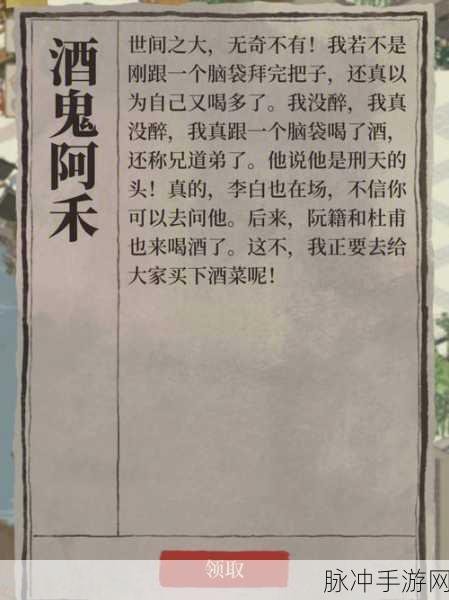 酒鬼阿禾
世间之大，无奇不有！我若不是
刚跟一个脑袋拜完把子，还真以
为自己又喝多了。我没醉，我真
没醉，我真跟一个脑袋喝了酒，
还称兄道弟了。他说他是刑天的
头！真的，李白也在场，不信你
可以去问他。后来，阮籍和杜甫
也来喝酒了。这不，我正要去给
大家买下酒菜呢！
领取
脉冲手游网